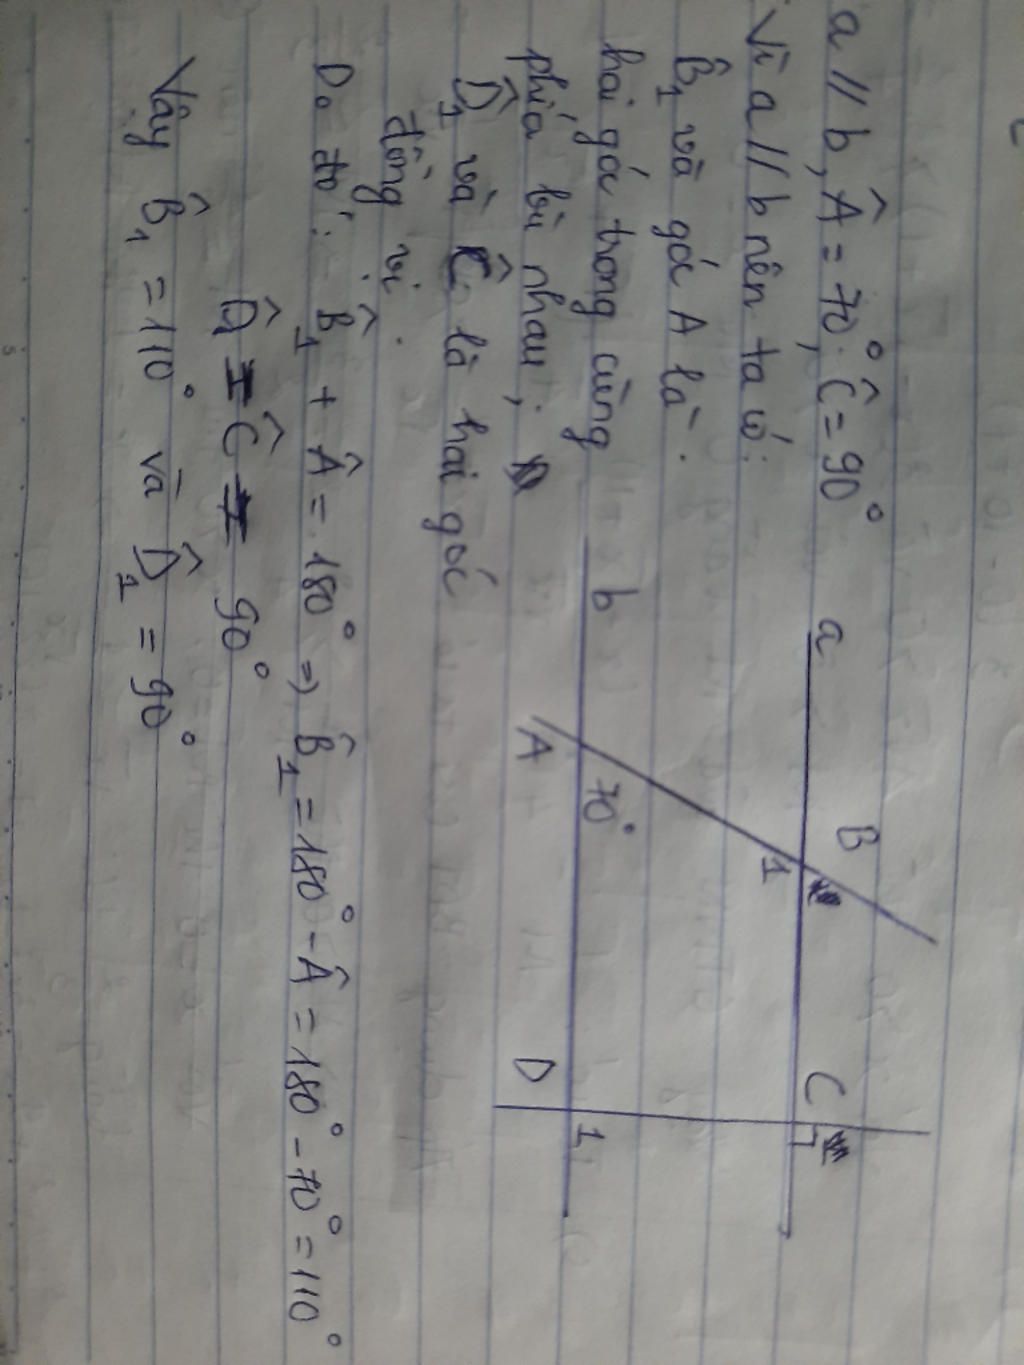 a // b, Â = 70°, Ĉ = 90°
Vì a // b nên ta có:
B̂₁ và góc A là
hai góc trong cùng
phía bù nhau;
D̂₁ và Ĉ là hai góc
đồng vị.
Do đó: B̂₁ + Â = 180° => B̂₁ = 180° - Â = 180° - 70° = 110°
D̂₁ = Ĉ = 90°
Vậy B̂₁ = 110° và D̂₁ = 90°
a B C
1
b 70° 1
A D